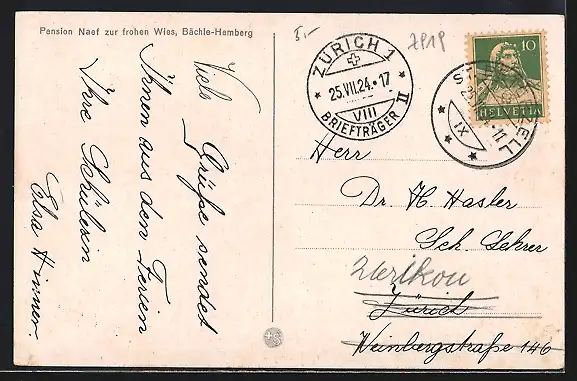 Pension Naef zur frohen Wies, Bächle-Hemberg
5.-
ZÜRICH 1
25.VII.24.-17
VIII
BRIEFTRÄGER II
10
HELVETIA
IX
Viele Grüße sendet
Ihnen aus den Ferien
Ihre Schülerin
Elsa
Herr
Dr. H. Hasler
Sek. Lehrer
Zürich
Weinbergstraße 146